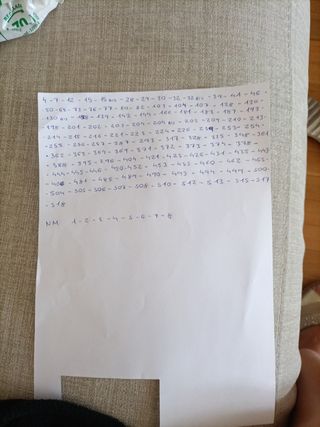 4 - 7 - 12 - 13 - 15 bis - 28 - 29 - 30 - 32 - 32 bis - 37 - 41 - 46 -
- 50 - 64 - 73 - 76 - 77 - 80 - 82 - 103 - 104 - 107 - 128 - 130 -
- 130 bis - 134 - 142 - 144 - 166 - 181 - 183 - 187 - 193 -
- 198 - 201 - 202 - 203 - 204 - 204 bis - 205 - 209 - 210 - 213 -
- 214 - 215 - 216 - 221 - 223 - 224 - 226 - 253 - 254 -
- 255 - 256 - 257 - 287 - 293 - 317 - 328 - 335 - 348 - 361
- 362 - 363 - 364 - 369 - 371 - 372 - 373 - 374 - 378 -
- 388 - 395 - 396 - 404 - 421 - 425 - 426 - 431 - 435 - 440
- 444 - 445 - 446 - 450 - 452 - 453 - 455 - 460 - 462 - 465
- 481 - 485 - 489 - 490 - 493 - 494 - 499 - 500 -
- 504 - 505 - 506 - 507 - 508 - 510 - 512 - 513 - 515 - 517
- 518
NM: 1 - 2 - 3 - 4 - 5 - 6 - 7 - 8